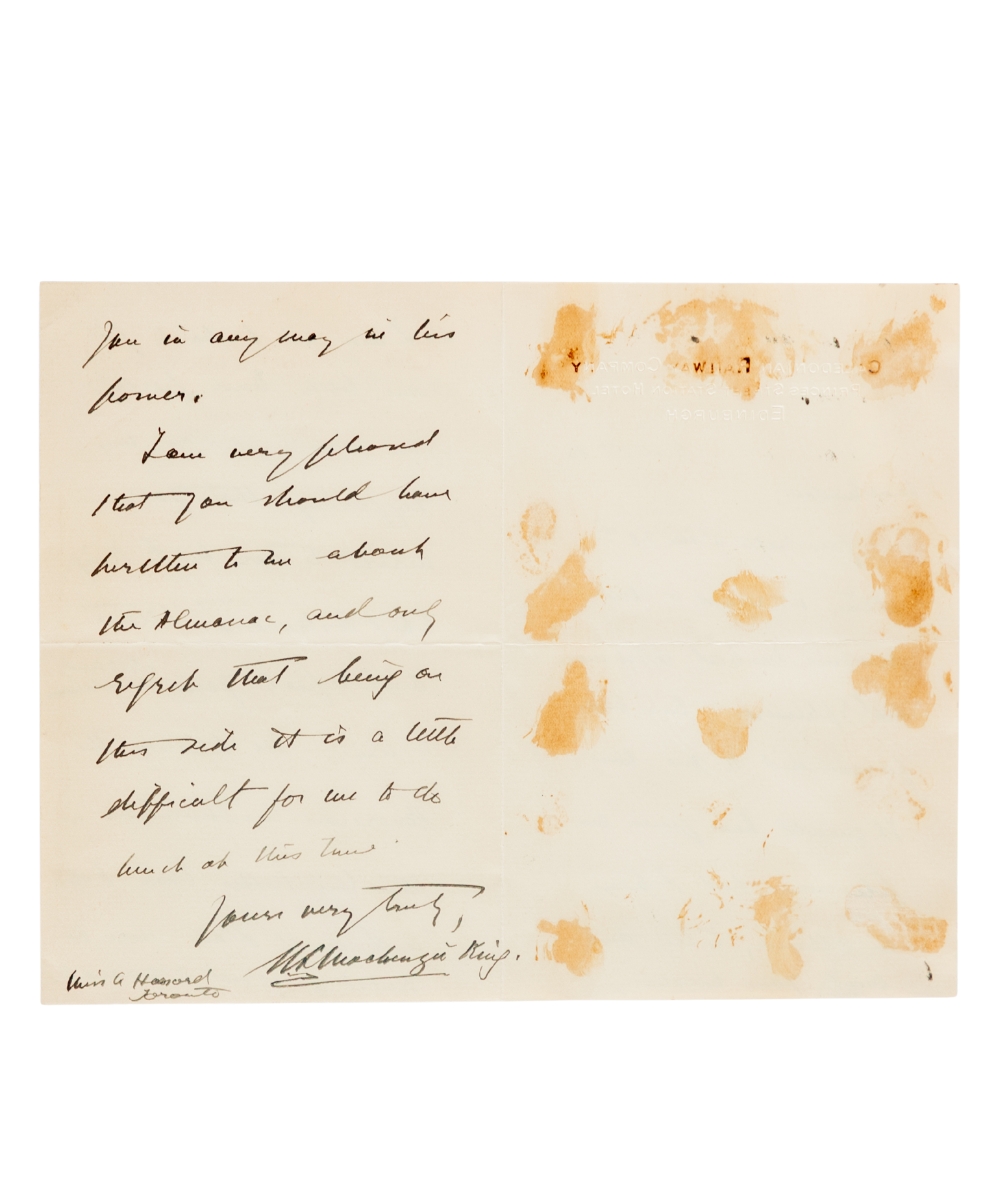 you in any way in his
power.
I am very pleased
that you should have
written to me about
the Almanac, and only
regret that being on
this side it is a little
difficult for me to do
much at this time.
Yours very truly,
WLMackenzie King.
Miss A Howard
Toronto
CALEDONIAN RAILWAY COMPANY
PRINCES STREET STATION HOTEL
EDINBURGH